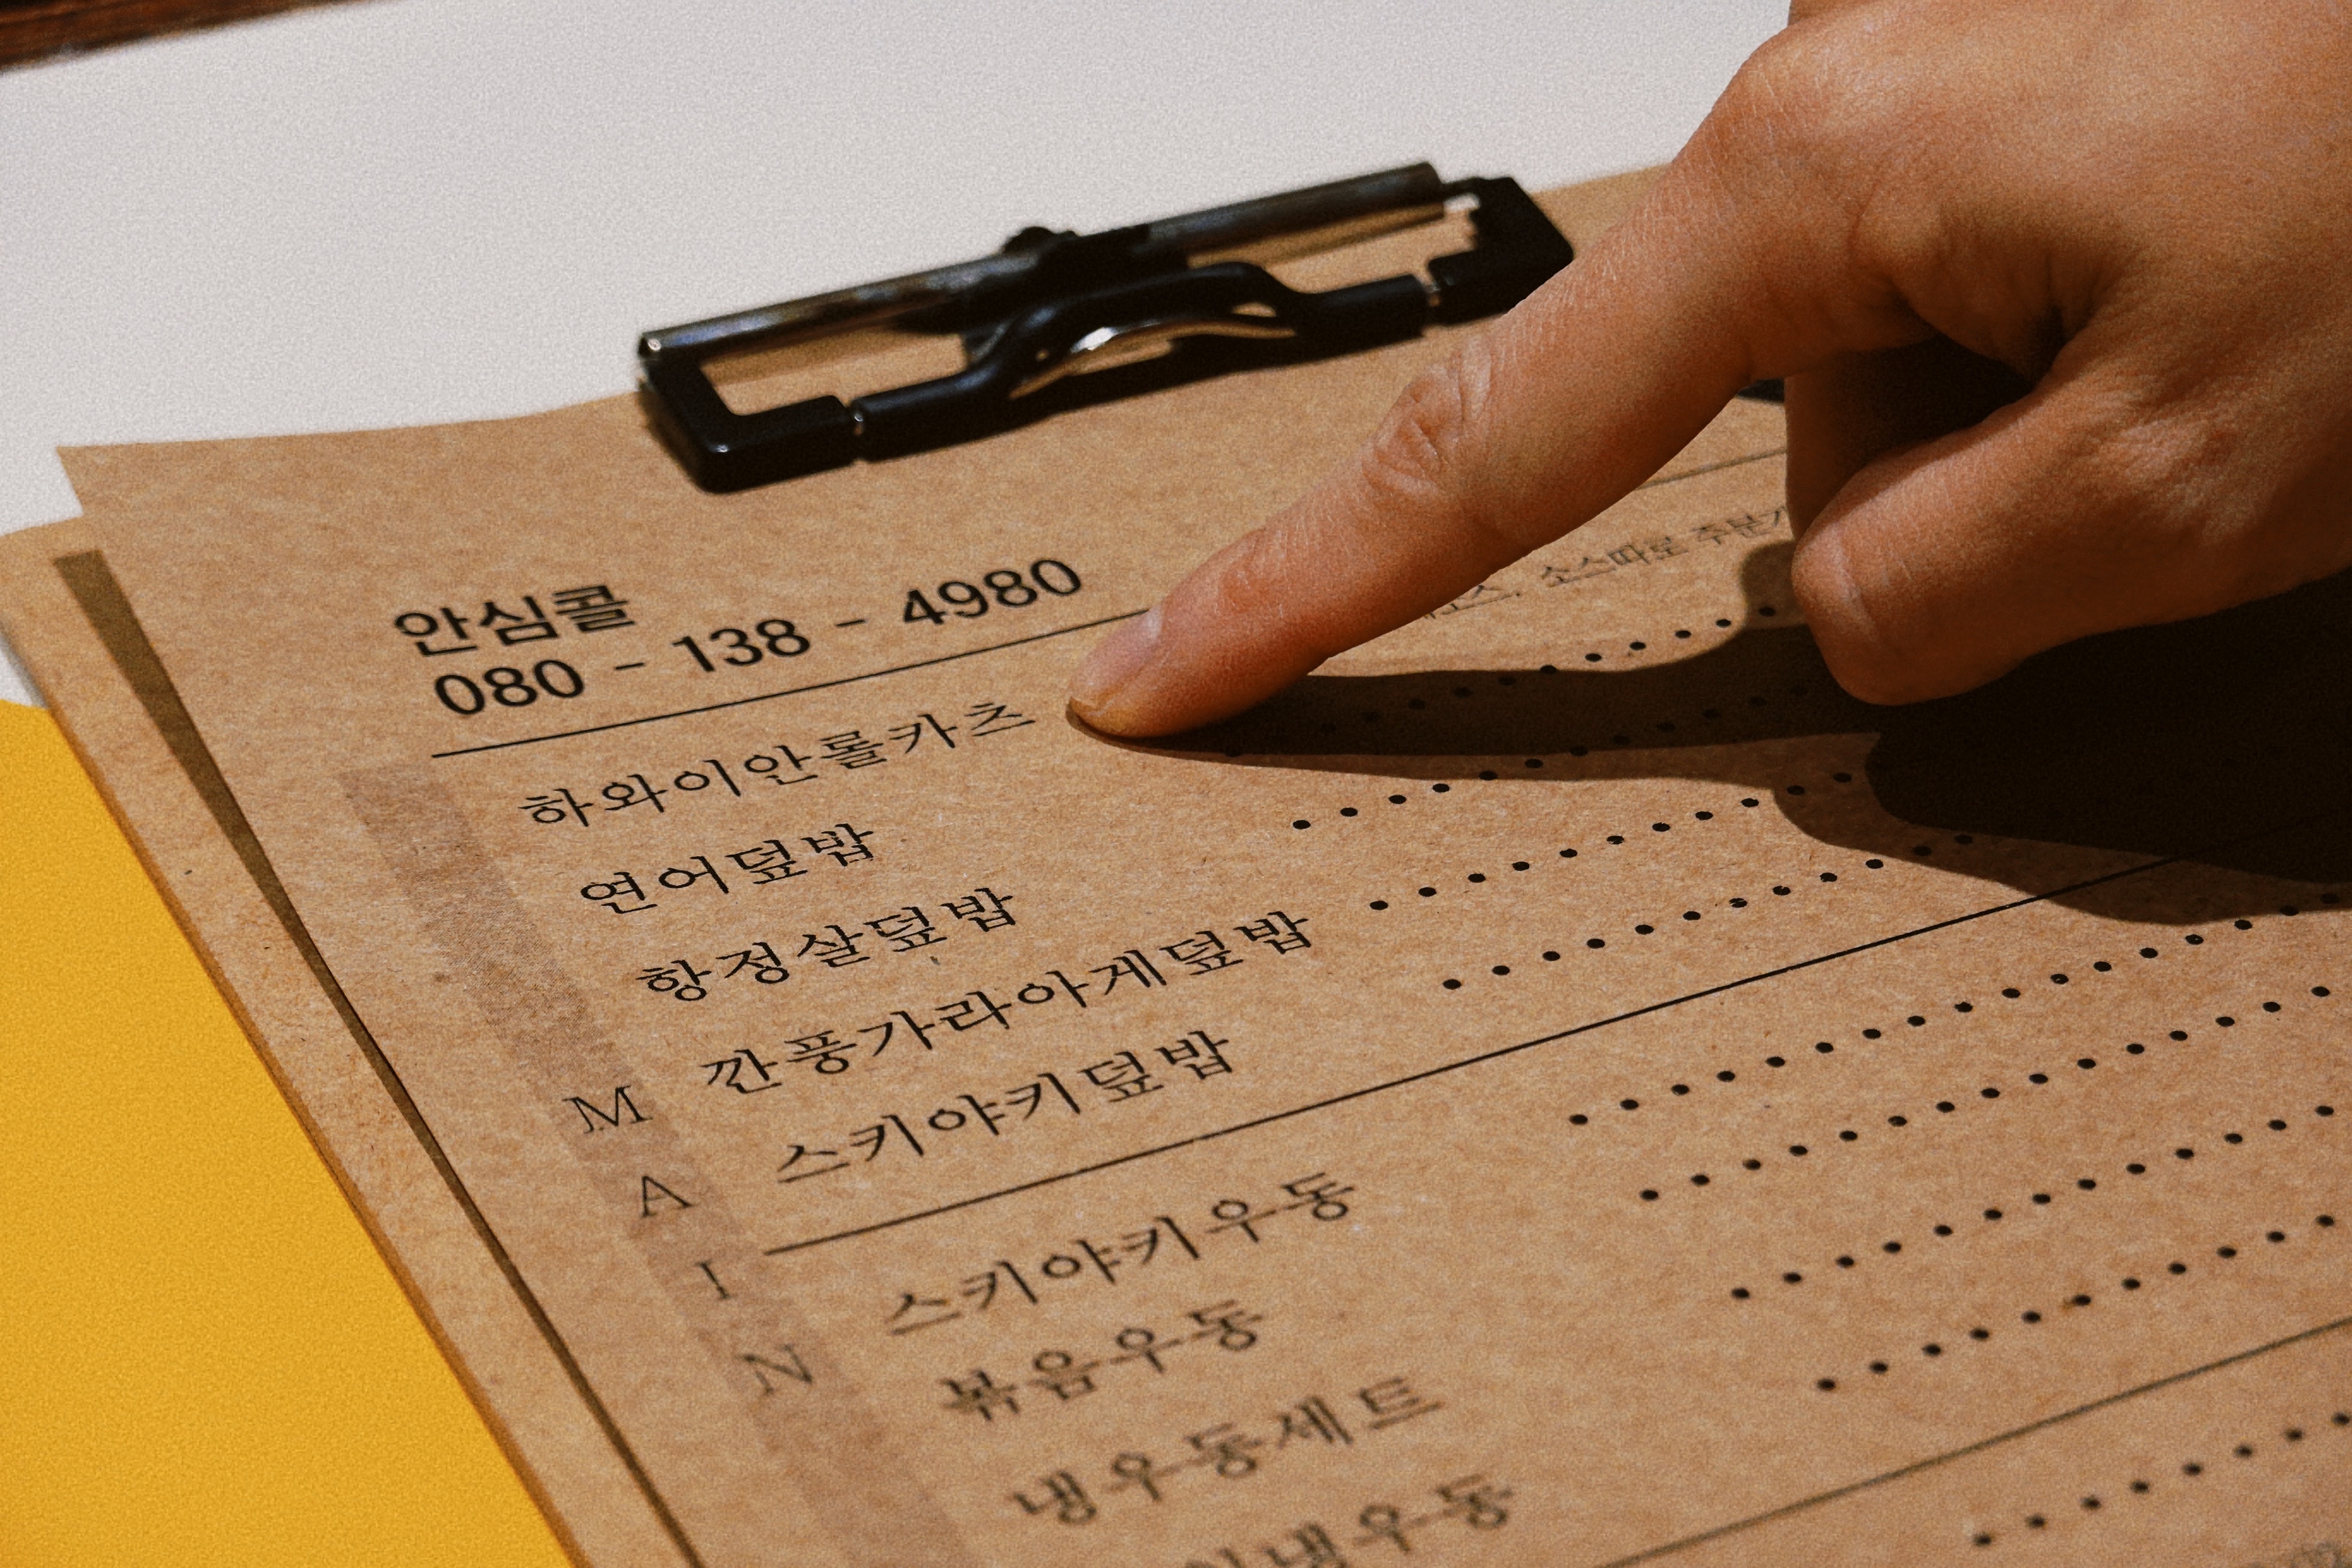 안심콜
080 - 138 - 4980
소스따로 주문가
하와이안롤카츠
연어덮밥
항정살덮밥
깐풍가라아게덮밥
스키야키덮밥
MAIN
스키야키우동
볶음우동
냉우동세트
냉우동